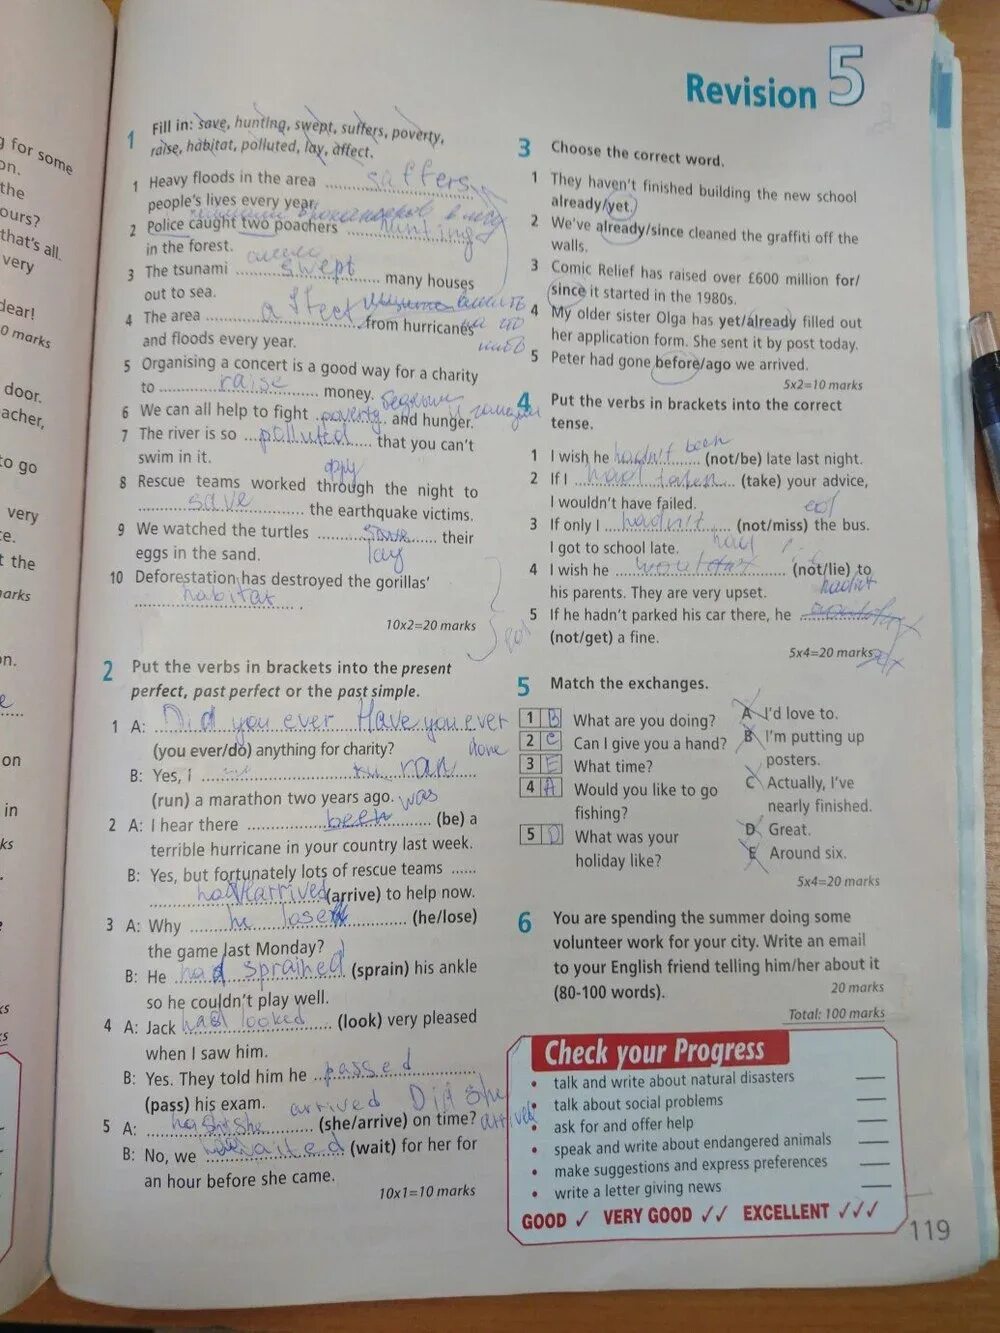 g for some
on.
the
ours?
that's all.
very
dear!
0 marks
door.
acher,
to go
very
ce.
t the
narks
on.
e
on
in
ks
Revision 5
1 Fill in: save, hunting, swept, suffers, poverty,
raise, habitat, polluted, lay, affect.
1 Heavy floods in the area saffers
people's lives every year.
2 Police caught two poachers hunting
in the forest.
3 The tsunami swept many houses
out to sea.
4 The area affect from hurricanes
and floods every year.
5 Organising a concert is a good way for a charity
to raise money.
6 We can all help to fight poverty and hunger.
7 The river is so polluted that you can't
swim in it.
8 Rescue teams worked through the night to
save the earthquake victims.
9 We watched the turtles save their
eggs in the sand. lay
10 Deforestation has destroyed the gorillas'
habitat .
10x2=20 marks
2 Put the verbs in brackets into the present
perfect, past perfect or the past simple.
1 A: Did you ever Have you ever
(you ever/do) anything for charity? done
B: Yes, I ran
(run) a marathon two years ago. was
2 A: I hear there been (be) a
terrible hurricane in your country last week.
B: Yes, but fortunately lots of rescue teams
arrived (arrive) to help now.
3 A: Why he lose (he/lose)
the game last Monday?
B: He had sprained (sprain) his ankle
so he couldn't play well.
4 A: Jack had looked (look) very pleased
when I saw him.
B: Yes. They told him he passed
(pass) his exam. arrived Did she
5 A: she (she/arrive) on time? arrived
B: No, we waited (wait) for her for
an hour before she came.
10x1=10 marks
3 Choose the correct word.
1 They haven't finished building the new school
already/yet.
2 We've already/since cleaned the graffiti off the
walls.
3 Comic Relief has raised over £600 million for/
since it started in the 1980s.
4 My older sister Olga has yet/already filled out
her application form. She sent it by post today.
5 Peter had gone before/ago we arrived.
5x2=10 marks
4 Put the verbs in brackets into the correct
tense.
1 I wish he hadn't been (not/be) late last night.
2 If I had taken (take) your advice,
I wouldn't have failed.
3 If only I hadn't (not/miss) the bus.
I got to school late. had
4 I wish he (not/lie) to
his parents. They are very upset. hadn't
5 If he hadn't parked his car there, he
(not/get) a fine.
5x4=20 marks
5 Match the exchanges.
1 B What are you doing?
2 C Can I give you a hand?
3 E What time?
4 A Would you like to go
fishing?
5 D What was your
holiday like?
A I'd love to.
B I'm putting up
posters.
C Actually, I've
nearly finished.
D Great.
E Around six.
5x4=20 marks
6 You are spending the summer doing some
volunteer work for your city. Write an email
to your English friend telling him/her about it
(80-100 words).
20 marks
Total: 100 marks
Check your Progress
• talk and write about natural disasters
• talk about social problems
• ask for and offer help
• speak and write about endangered animals
• make suggestions and express preferences
• write a letter giving news
GOOD ✓ VERY GOOD ✓✓ EXCELLENT ✓✓✓
119